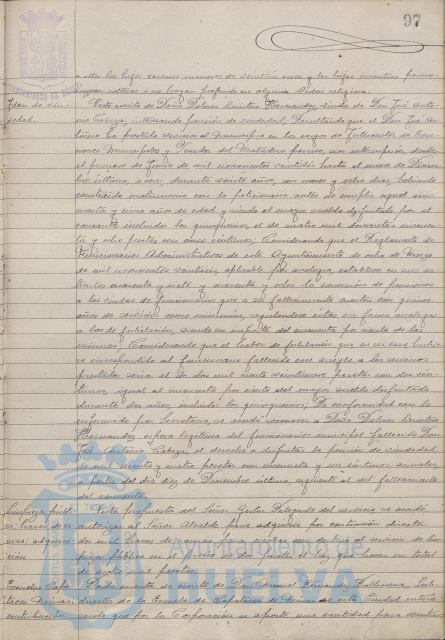 97
AYUNTAMIENTO DE HUELVA
a ella los hijos varones menores de veintiún años y las hijas mientras perma-
nezcan solteras o no hayan profesado en alguna Orden religiosa.
Idem de viu-
dedad.
Visto escrito de Doña Dolores Quintero Hernández, viuda de Don José Anto-
nio Cabeza, interesando pensión de viudedad; Resultando que el Don José An-
tonio ha prestado servicios al Municipio en los cargos de Interventor de Con-
sumos Municipales y Vocador del Matadero público, sin interrupción desde
el primero de Junio de mil novecientos veintidós hasta el nueve de Diciem-
bre último, o sea, durante veinte años, seis meses y ocho días, habiendo
contraído matrimonio con la peticionaria antes de cumplir aquel sin-
cuenta y cinco años de edad y siendo el mayor sueldo disfrutado por el
causante incluidos los quinquenios, el de cuatro mil doscientas cincuen-
ta y ocho pesetas con cinco céntimos; Considerando que el Reglamento de
Funcionarios Administrativos de este Ayuntamiento de ocho de Marzo
de mil novecientos veintiséis, aplicable por analogía, establece en sus ar-
tículos cuarenta y siete y cuarenta y ocho la concesión de pensiones
a las viudas de funcionarios que a su fallecimiento cuenten con quince
años de servicios como mínimum, regulándose éstas en forma análoga
a las de jubilación, siendo su importe del cincuenta por ciento de las
mismas; Considerando que el haber de jubilación que en su caso hubie-
re correspondido al funcionario fallecido con arreglo a los servicios
prestados sería el de dos mil ciento veintinueve pesetas con dos cén-
timos, igual al cincuenta por ciento del mayor sueldo disfrutado
durante dos años, incluidos los quinquenios; De conformidad con lo
informado por Secretaría, se acordó reconocer a Doña Dolores Quintero
Hernández, esposa legítima del funcionario municipal fallecido Don
José Antonio Cabeza, el derecho a disfrutar la pensión de viudedad
de mil sesenta y cuatro pesetas con cincuenta y un céntimos anuales,
a partir del día diez de Diciembre último, siguiente al del fallecimiento
del causante.
Limpieza públi-
ca: haces de ra-
mas; adquisi-
ción
Vista propuesta del Señor Gestor Delegado del servicio, se acordó
autorizar al Señor Alcalde para adquirir por contratación directa
dos mil haces de ramas para escobas con destino al servicio de lim-
pieza pública en el precio de dos pesetas el haz que hacen un total
de cuatro mil pesetas.
Escuelas Capa-
taces Minas;
contribución
Dada cuenta de escrito de Don Manuel Fernández Balbuena, Di-
rector de la Escuela de Capataces de Minas de esta Ciudad intere-
sando que por la Corporación se aporte una cantidad para contri-
Ayuntamiento de
HUELVA